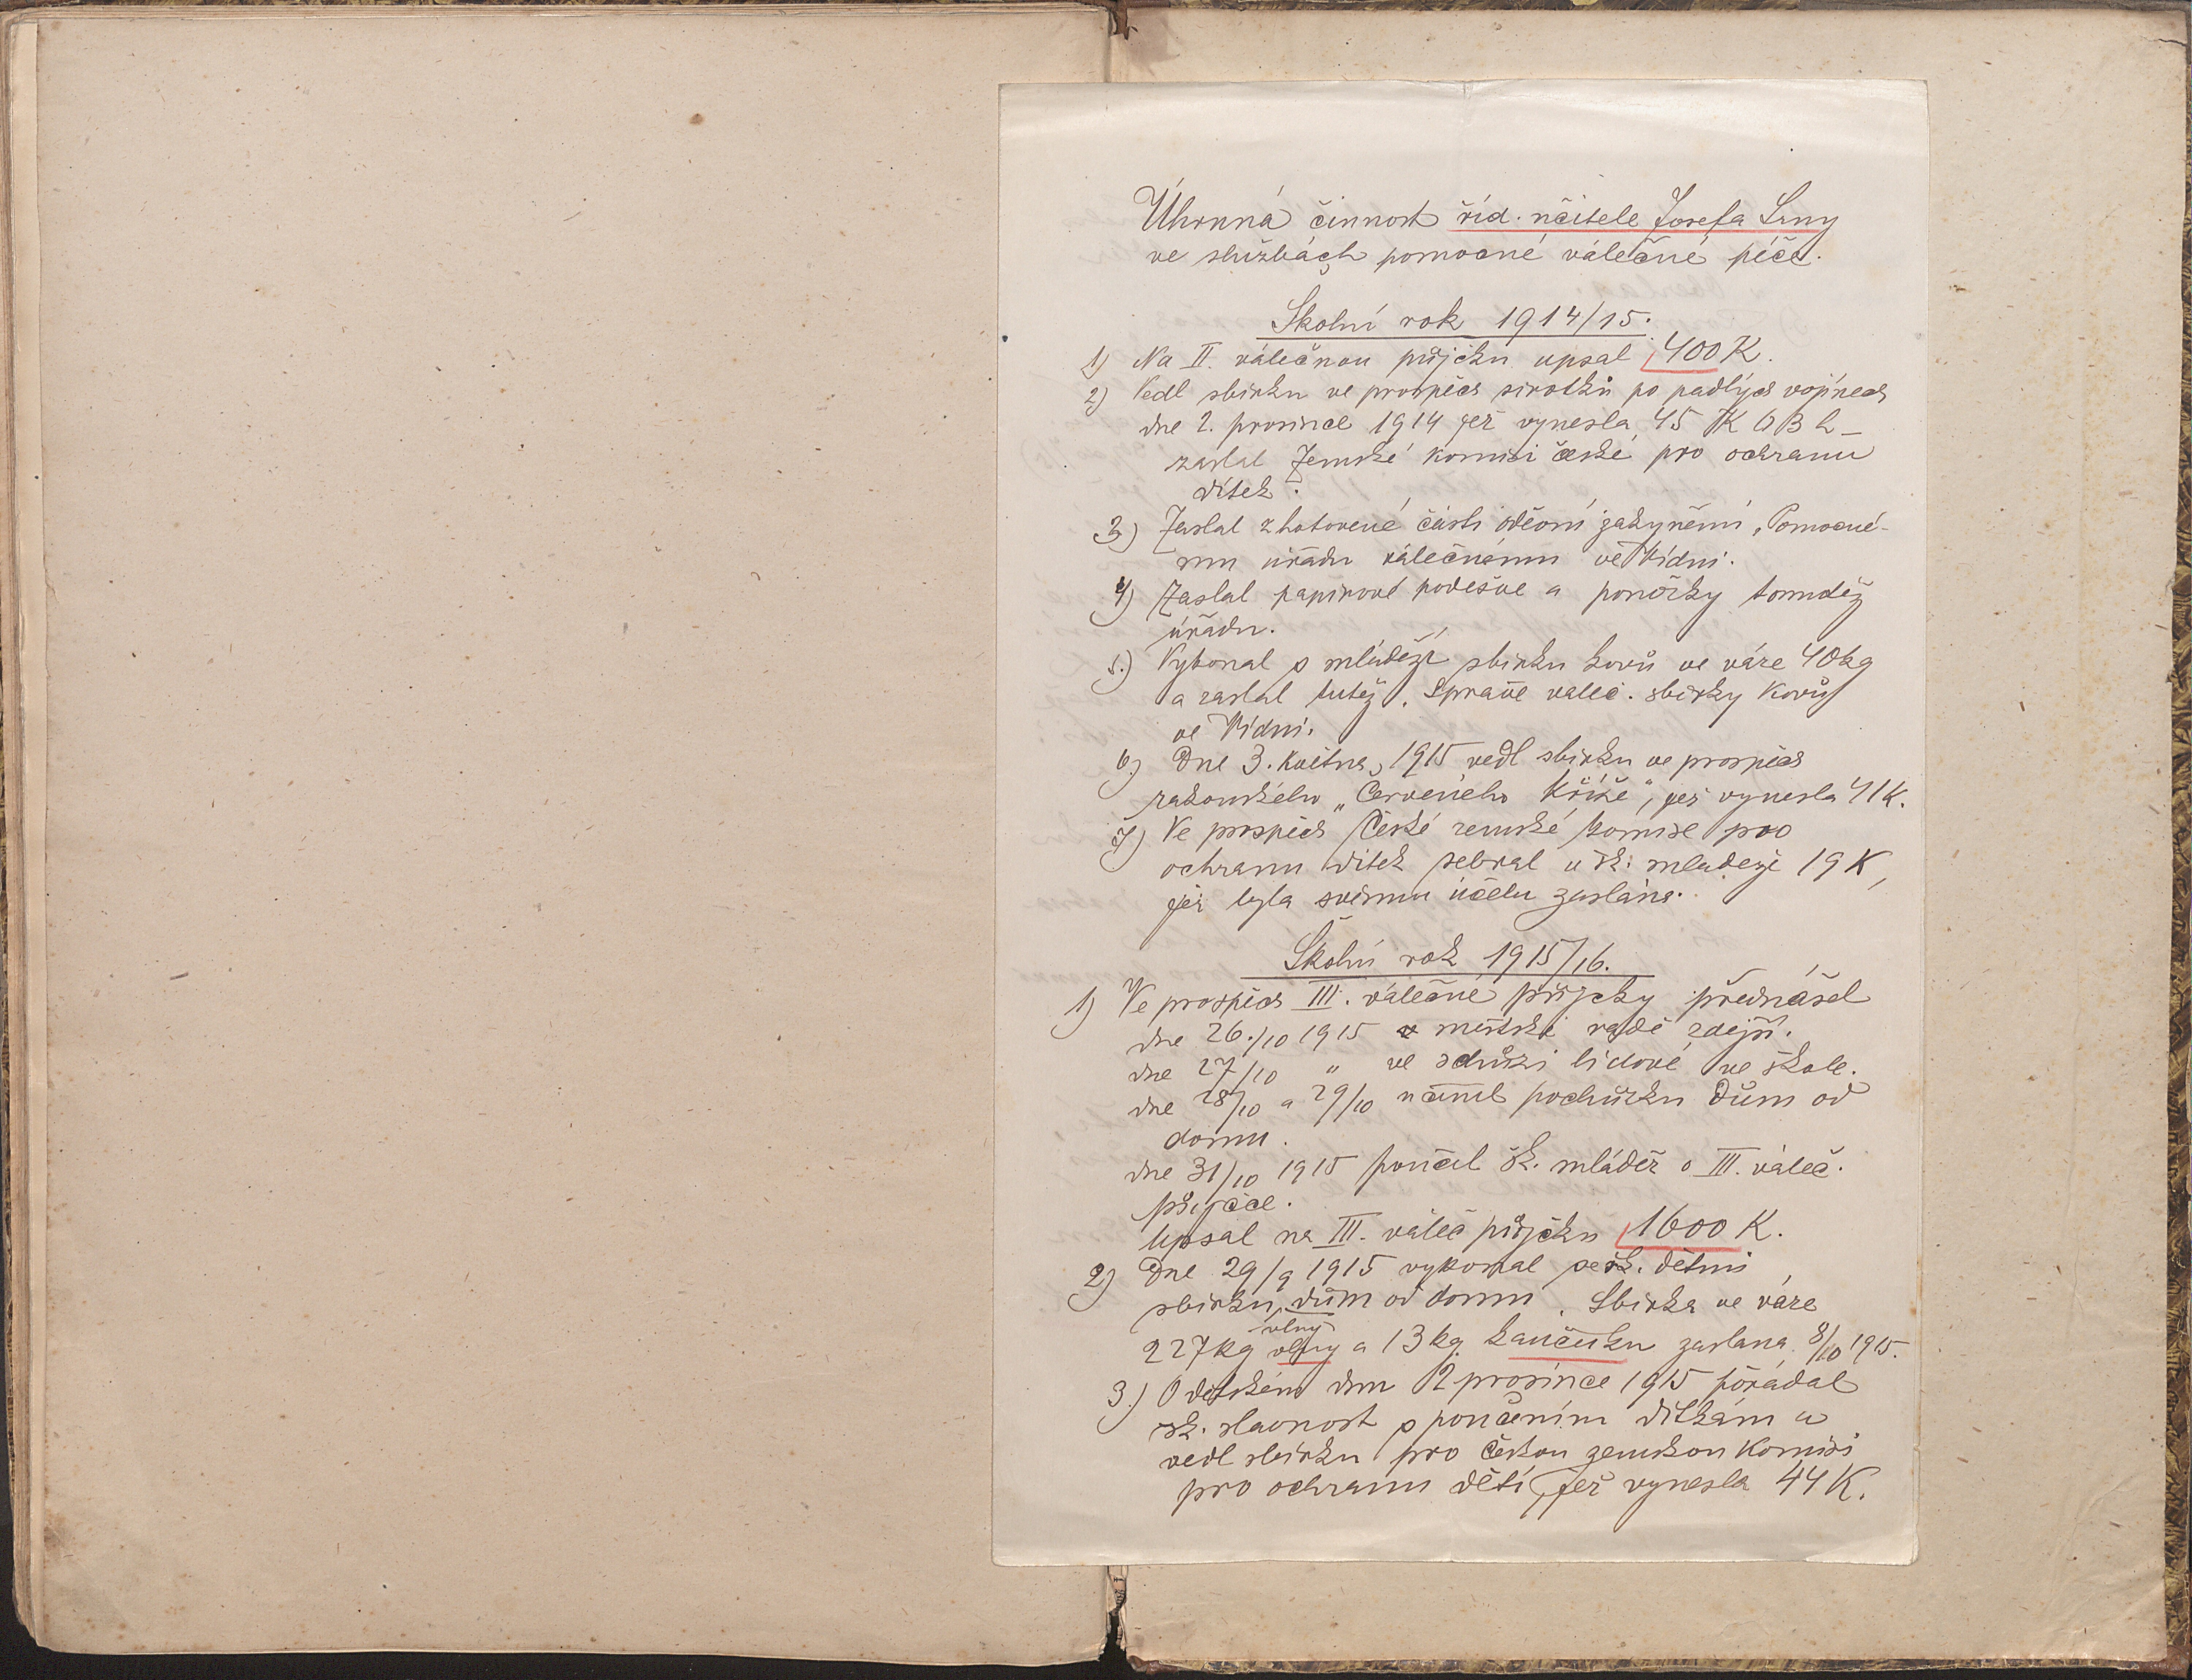 Úhrnná činnost říd. učitele Josefa Srny
ve službách pomocné válečné péče.
Školní rok 1914/15.
1) Na II. válečnou půjčku upsal 400 K.
2) Vedl sbírku ve prospěch sirotků po padlých vojínech
dne 2. prosince 1914 jež vynesla 45 K 03 h –
zaslal Zemské komisi české pro ochranu
dítek.
3) Zaslal zhotovené části oděvní zakynění „Pomocné-
mu úřadu válečnému ve Vídni.
4) Zaslal papírové podešve a ponožky tomutéž
úřadu.
5.) Vykonal s mládeží sbírku kovů ve váze 40 kg
a zaslal tutéž „Správě váleč. sbírky kovů
ve Vídni.
6.) Dne 3. května 1915 vedl sbírku ve prospěch
rakouského „Červeného Kříže", jež vynesla 41 K.
7) Ve prospěch České zemské komise pro
ochranu dítek sebral u šk. mládeže 19 K,
jež byla svému účelu zaslána.
Školní rok 1915/16.
1) Ve prospěch III. válečné půjčky přednášel
dne 26./10 1915 v městské radě zdejší.
dne 27/10 " ve schůzi lidové ve škole.
dne 28/10 a 29/10 učinil pochůzku dům od
domu.
dne 31/10 1915 poučil šk. mládež o III. váleč.
půjčce.
Upsal na III. váleč půjčku 1600 K.
2) Dne 29/9 1915 vykonal se šk. dětmi
sbírku dům od domu. Sbírka ve váze
vlny
227 kg vlny a 13 kg kaučuku zaslána 8/10 1915.
3.) O dětském dnu 2 prosince 1915 pořádal
šk. slavnost s poučením dítkám a
vedl sbírku pro českou zemskou komisi
pro ochranu dětí, jež vynesla 44 K.